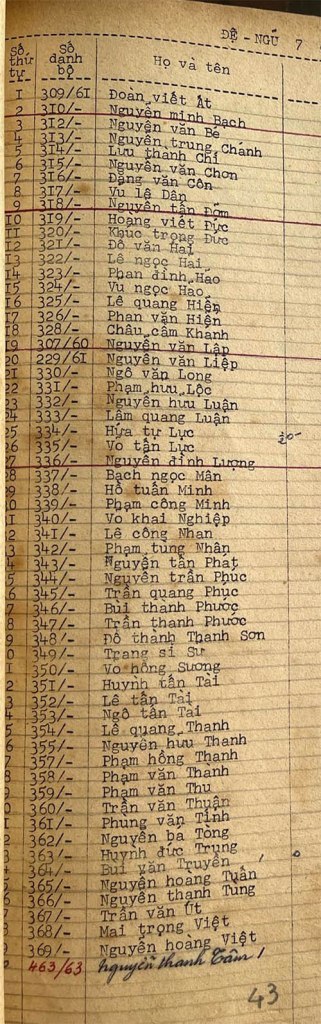 ĐỆ - NGŨ 7
Số thứ tự Số danh bộ Họ và tên
I 309/6I Đoàn viết Ất
2 3I0/- Nguyễn minh Bạch
3 3I2/- Nguyễn văn Bé
4 3I3/- Nguyễn trung Chánh
5 3I4/- Lưu thanh Chi
6 3I5/- Nguyễn văn Chơn
7 3I6/- Đặng văn Côn
8 3I7/- Vu lê Dân
9 3I8/- Nguyễn tấn Đờm
I0 3I9/- Hoàng viết Đực
II 320/- Khúc trọng Đức
I2 32I/- Đỗ văn Hai
I3 322/- Lê ngọc Hai
I4 323/- Phan đình Hao
I5 324/- Vu ngọc Hao
I6 325/- Lê quang Hiển
I7 326/- Phan văn Hiển
I8 328/- Châu cẩm Khanh
I9 307/60 Nguyễn văn Lập
20 229/6I Nguyễn văn Liệp
2I 330/- Ngô văn Long
22 33I/- Phạm hưu Lộc
23 332/- Nguyễn hưu Luận
24 333/- Lâm quang Luận
25 334/- Hứa tư Lực
26 335/- Vo tấn Lực
27 336/- Nguyễn đình Lượng
28 337/- Bạch ngọc Mân
29 338/- Hồ tuấn Minh
30 339/- Phạm công Minh
I 340/- Vo khai Nghiệp
2 34I/- Lê công Nhan
3 342/- Phạm tung Nhân
4 343/- Nguyễn tấn Phat
5 344/- Nguyễn trần Phuc
6 345/- Trần quang Phuc
7 346/- Bùi thanh Phước
8 347/- Trần thanh Phước
9 348/- Đỗ thành Thanh Sơn
0 349/- Trang si Sư
I 350/- Vo hồng Sương
2 35I/- Huynh tấn Tai
3 352/- Lê tấn Tài
4 353/- Ngô tấn Tai
5 354/- Lê quang Thanh
6 355/- Nguyễn hưu Thanh
7 357/- Phạm hồng Thanh
8 358/- Phạm văn Thanh
9 359/- Phạm văn Thu
0 360/- Trần văn Thuận
I 36I/- Phùng văn Tinh
2 362/- Nguyễn ba Tòng
3 363/- Huynh đức Trung
4 364/- Bui văn Truyền
5 365/- Nguyễn hoàng Tuấn
6 366/- Nguyễn thanh Tung
7 367/- Trần văn Út
8 368/- Mai trọng Việt
9 369/- Nguyễn hoàng Việt
463/63 Nguyễn thanh Tâm
43